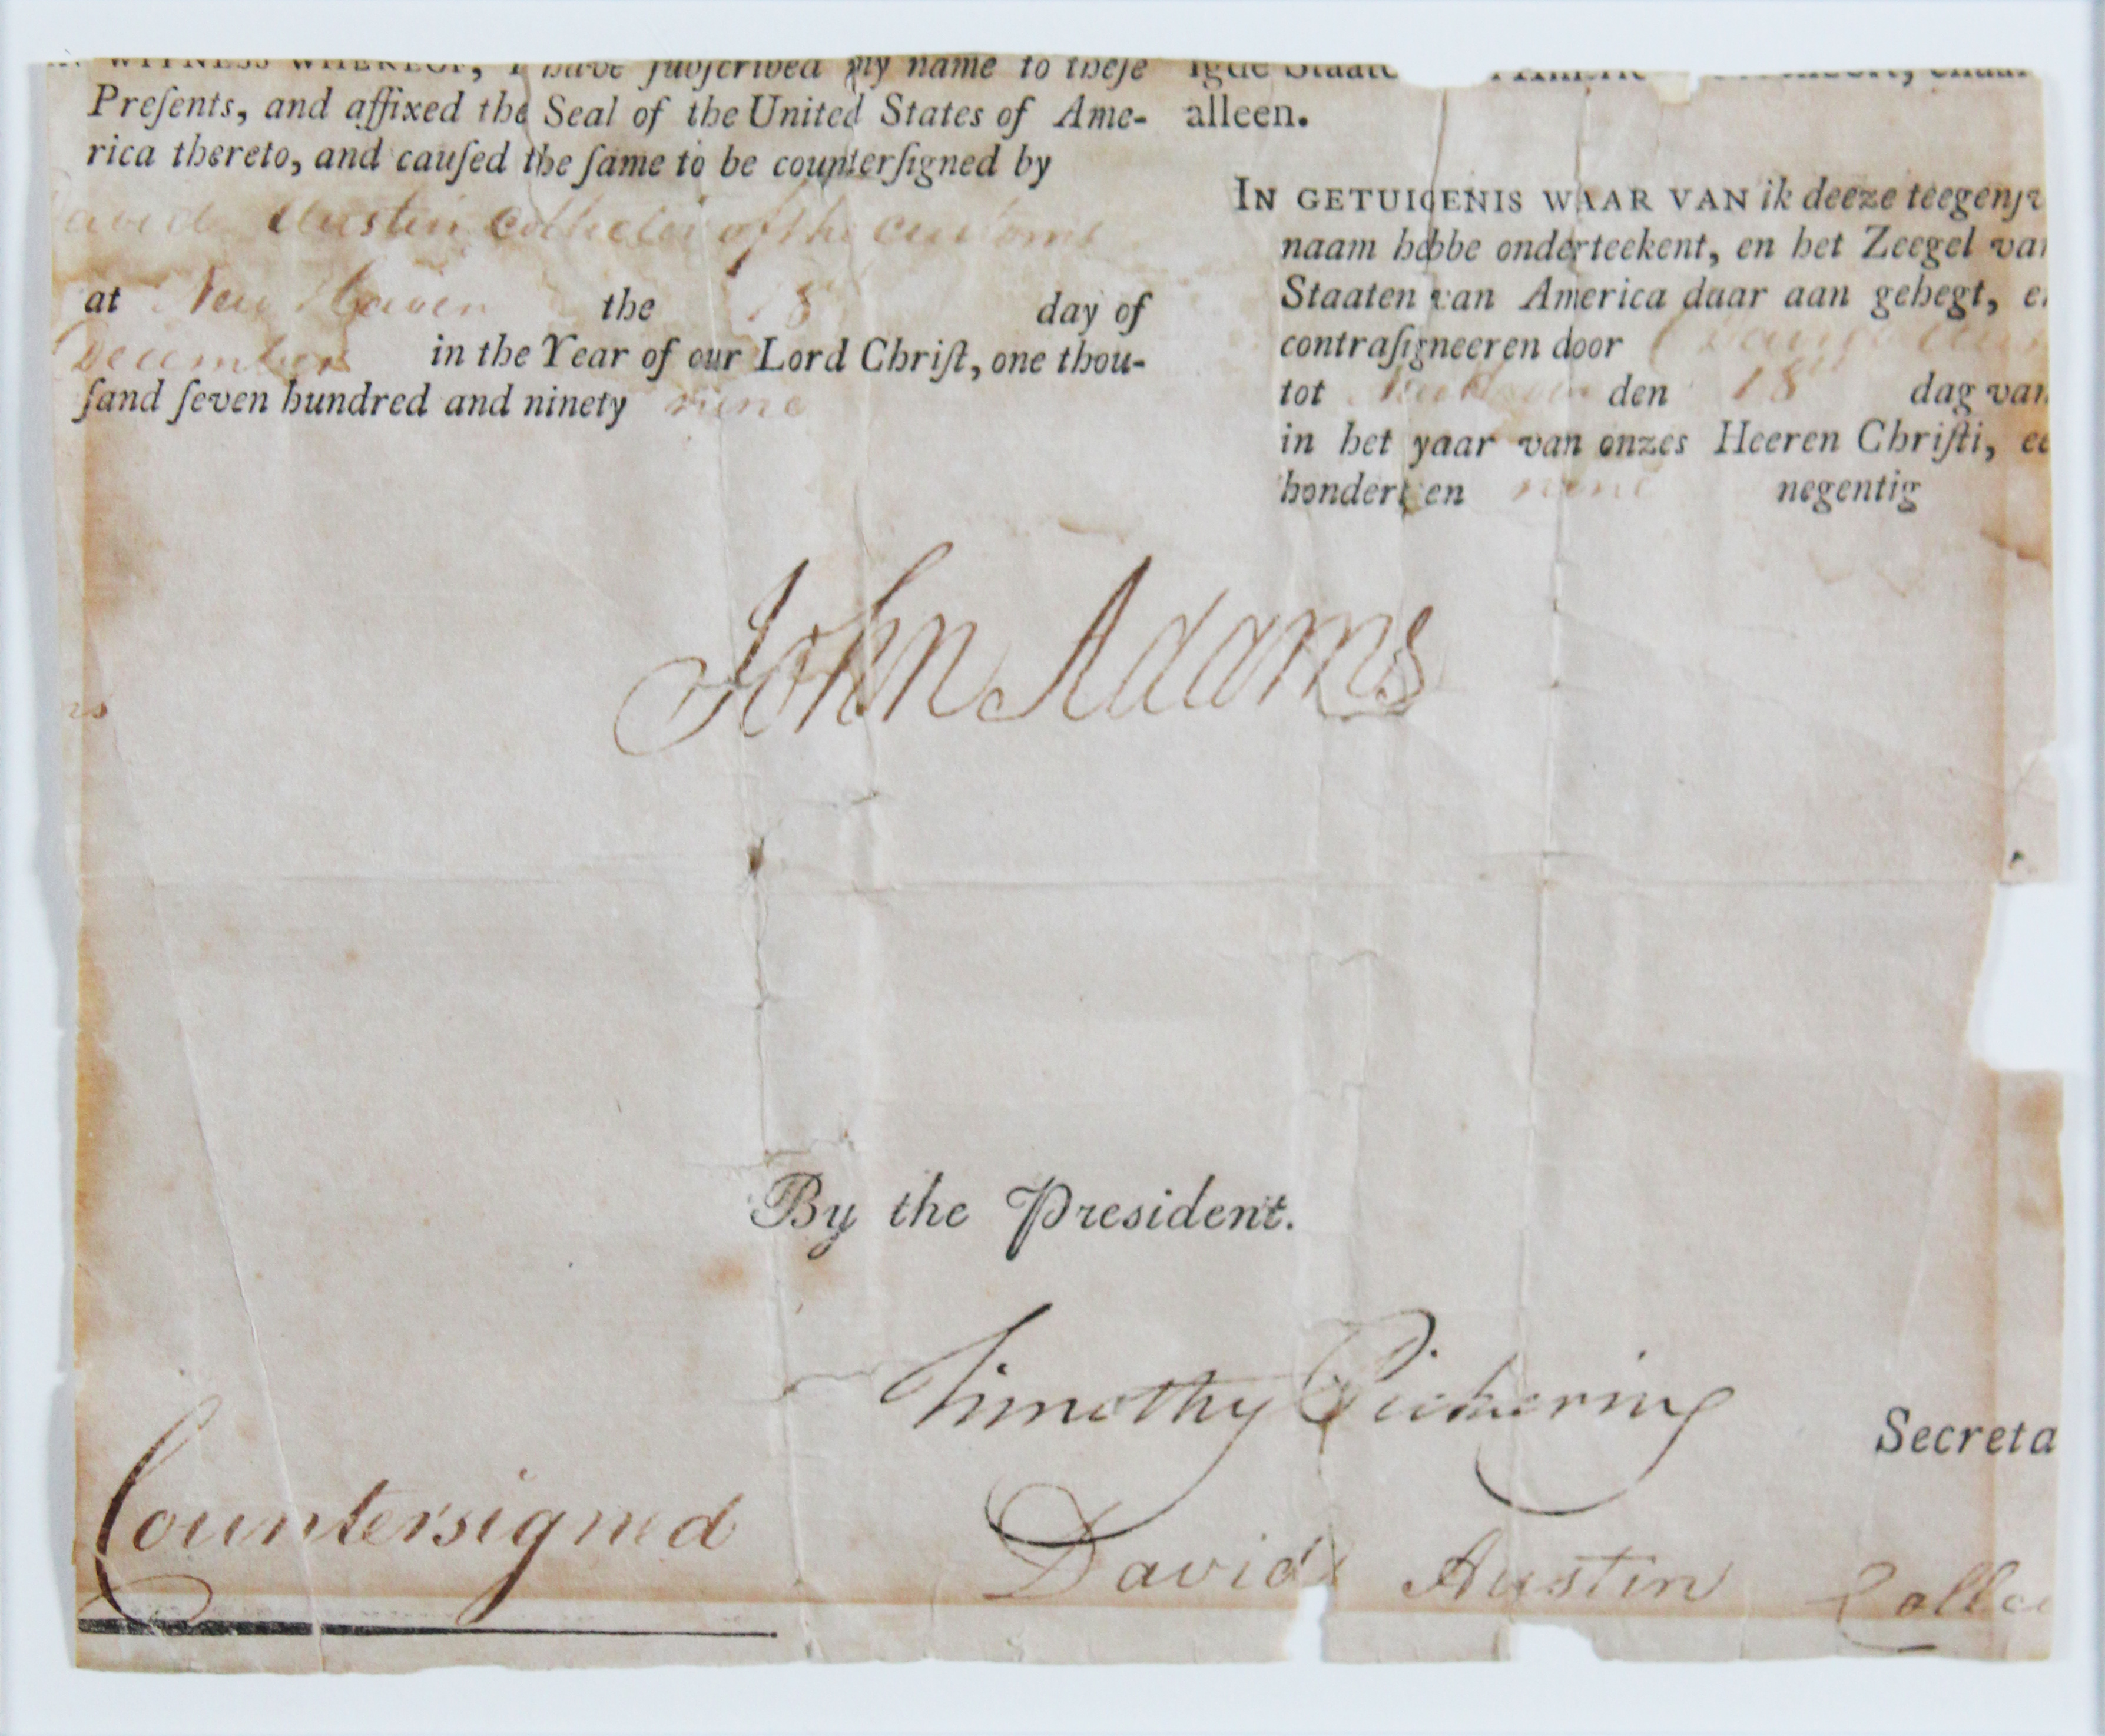 IN WITNESS WHEREOF, I have ſubſcribed my name to theſe
Preſents, and affixed the Seal of the United States of Ame-
rica thereto, and cauſed the ſame to be counterſigned by
David Austin Collector of the customs
at New Haven the 18 day of
December in the Year of our Lord Chriſt, one thou-
ſand ſeven hundred and ninety nine
alleen.
IN GETUIGENIS WAAR VAN ik deeze
naam hebbe onderteekent, en het Zeegel van
Staaten van America daar aan gehegt, e
contraſigneeren door David
tot New Haven den 18 dag van
in het yaar van onzes Heeren Chriſti, ee
hondert en nine negentig
John Adams
By the President.
Timothy Pickering
Secreta
Countersigned
David Austin Collec